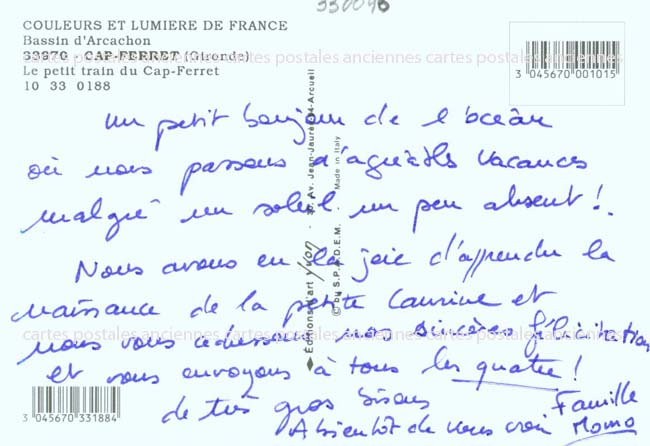 330096
COULEURS ET LUMIERE DE FRANCE
Bassin d'Arcachon
33970 - CAP-FERRET (Gironde)
Le petit train du Cap-Ferret
10 33 0188
3 045670 001015
cartes postales anciennes cartes postales anciennes cartes postales anciennes
un petit bonjour de l'océan
où nous passons d'agréables vacances
malgré un soleil un peu absent !
Nous avons eu la joie d'apprendre la
naissance de la petite Laurine et
nous vous adressons nos sincères félicitations
et vous envoyons à tous les quatre !
de très gros bisous
A bientôt de vous voir
Famille
Momo
cartes postales anciennes cartes postales anciennes cartes postales anciennes
Editions d'art yvon 30, Av. Jean-Jaurès 94-Arcueil
© by S.P.A.D.E.M. - Made in Italy
3 045670 331884